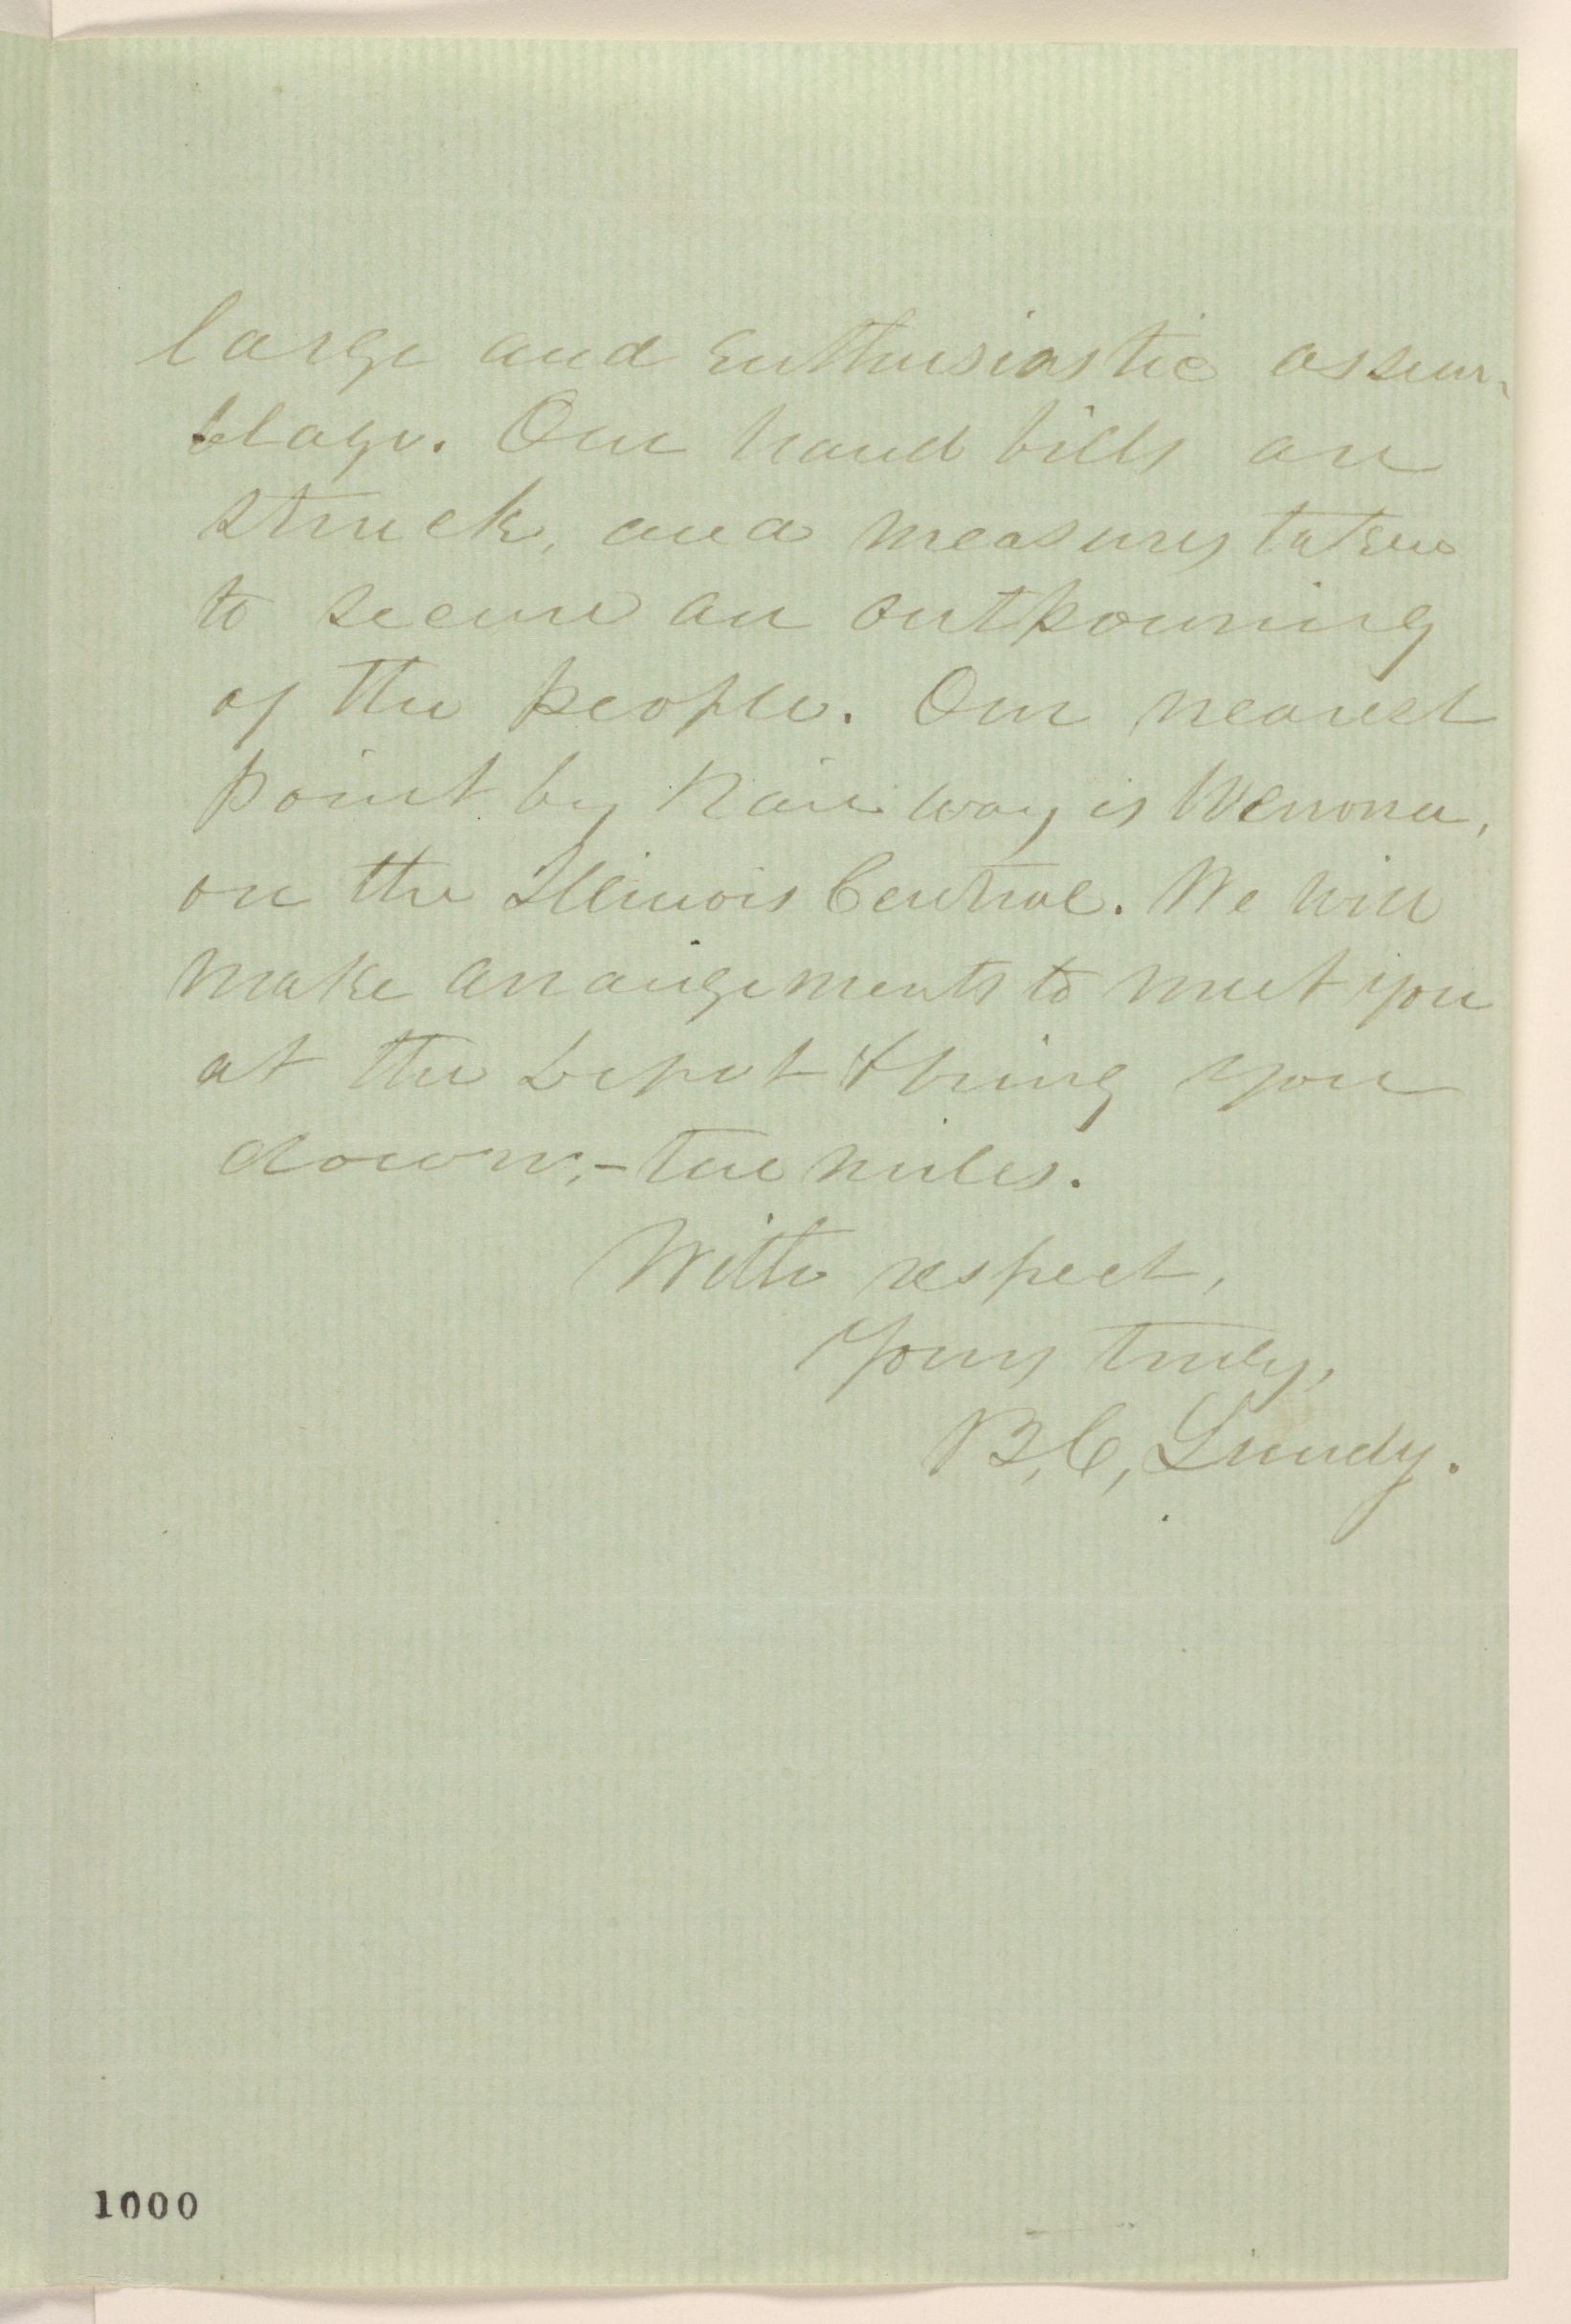 large and enthusiastic assem-
blage. Our hand bills are
struck, and measures taken
to secure an outpouring
of the people. Our nearest
point by Rail way is Wenona,
on the Illinois Central. We will
make arrangements to meet you
at the Depot & bring you
down,- ten miles.
With respect,
Yours truly,
B, C, Lundy.
1000